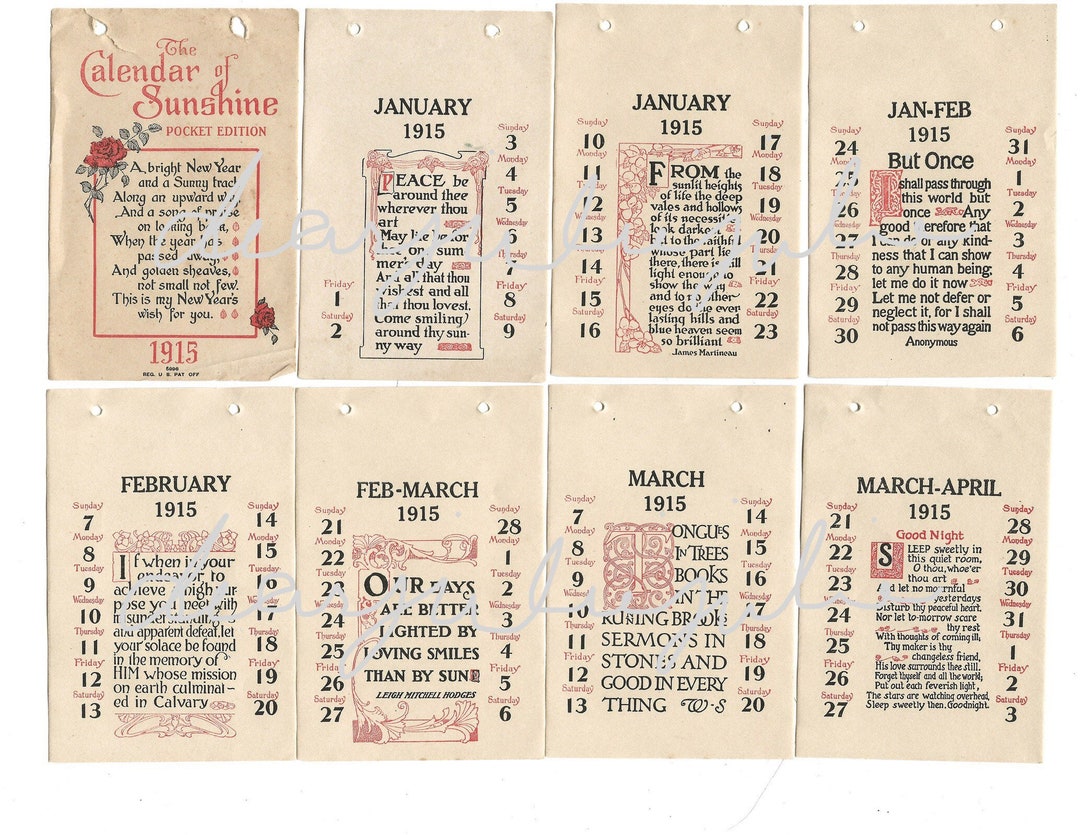 The
Calendar of
Sunshine
POCKET EDITION
A bright New Year
and a Sunny track
Along an upward way
And a song of praise
on looking back
When the year has
passed away
And golden sheaves,
not small not few.
This is my New Year's
wish for you.
1915
5996
REG. U. S. PAT OFF
JANUARY
1915
Friday
1
Saturday
2
PEACE be
around thee
wherever thou
art
May life be for
thee one sum
mer's day
And all that thou
wishest and all
that thou lovest.
Come smiling
around thy sun-
ny way
Sunday
3
Monday
4
Tuesday
5
Wednesday
6
Thursday
7
Friday
8
Saturday
9
JANUARY
1915
Sunday
10
Monday
11
Tuesday
12
Wednesday
13
Thursday
14
Friday
15
Saturday
16
FROM the
sunlit heights
of life the deep
vales and hollows
of its necessities
look darkest
but to the faithful
whose part lies
there, there is still
light enough to
show the way
and to no other
eyes do the ever
lasting hills and
blue heaven seem
so brilliant
James Martineau
Sunday
17
Monday
18
Tuesday
19
Wednesday
20
Thursday
21
Friday
22
Saturday
23
JAN-FEB
1915
Sunday
24
Monday
25
Tuesday
26
Wednesday
27
Thursday
28
Friday
29
Saturday
30
But Once
I shall pass through
this world but
once Any
good therefore that
I can do or any kind-
ness that I can show
to any human being;
let me do it now
Let me not defer or
neglect it, for I shall
not pass this way again
Anonymous
Sunday
31
Monday
1
Tuesday
2
Wednesday
3
Thursday
4
Friday
5
Saturday
6
FEBRUARY
1915
Sunday
7
Monday
8
Tuesday
9
Wednesday
10
Thursday
11
Friday
12
Saturday
13
If when in your
endeavor to
achieve a high pur
pose you meet with
misunderstanding
and apparent defeat, let
your solace be found
in the memory of
HIM whose mission
on earth culminat-
ed in Calvary
Sunday
14
Monday
15
Tuesday
16
Wednesday
17
Thursday
18
Friday
19
Saturday
20
FEB-MARCH
1915
Sunday
21
Monday
22
Tuesday
23
Wednesday
24
Thursday
25
Friday
26
Saturday
27
OUR DAYS
ARE BETTER
LIGHTED BY
LOVING SMILES
THAN BY SUN
LEIGH MITCHELL HODGES
Sunday
28
Monday
1
Tuesday
2
Wednesday
3
Thursday
4
Friday
5
Saturday
6
MARCH
1915
Sunday
7
Monday
8
Tuesday
9
Wednesday
10
Thursday
11
Friday
12
Saturday
13
TONGUES
IN TREES
BOOKS
IN THE
RUNNING BROOKS
SERMONS IN
STONES AND
GOOD IN EVERY
THING W-S
Sunday
14
Monday
15
Tuesday
16
Wednesday
17
Thursday
18
Friday
19
Saturday
20
MARCH-APRIL
1915
Sunday
21
Monday
22
Tuesday
23
Wednesday
24
Thursday
25
Friday
26
Saturday
27
Good Night
SLEEP sweetly in
this quiet room,
O thou, whoe'er
thou art
And let no mournful
yesterdays
Disturb thy peaceful heart.
Nor let to-morrow scare
thy rest
With thoughts of coming ill;
Thy maker is thy
changeless friend,
His love surrounds thee still.
Forget thyself and all the world;
Put out each feverish light,
The stars are watching overhead,
Sleep sweetly then. Goodnight.
Sunday
28
Monday
29
Tuesday
30
Wednesday
31
Thursday
1
Friday
2
Saturday
3